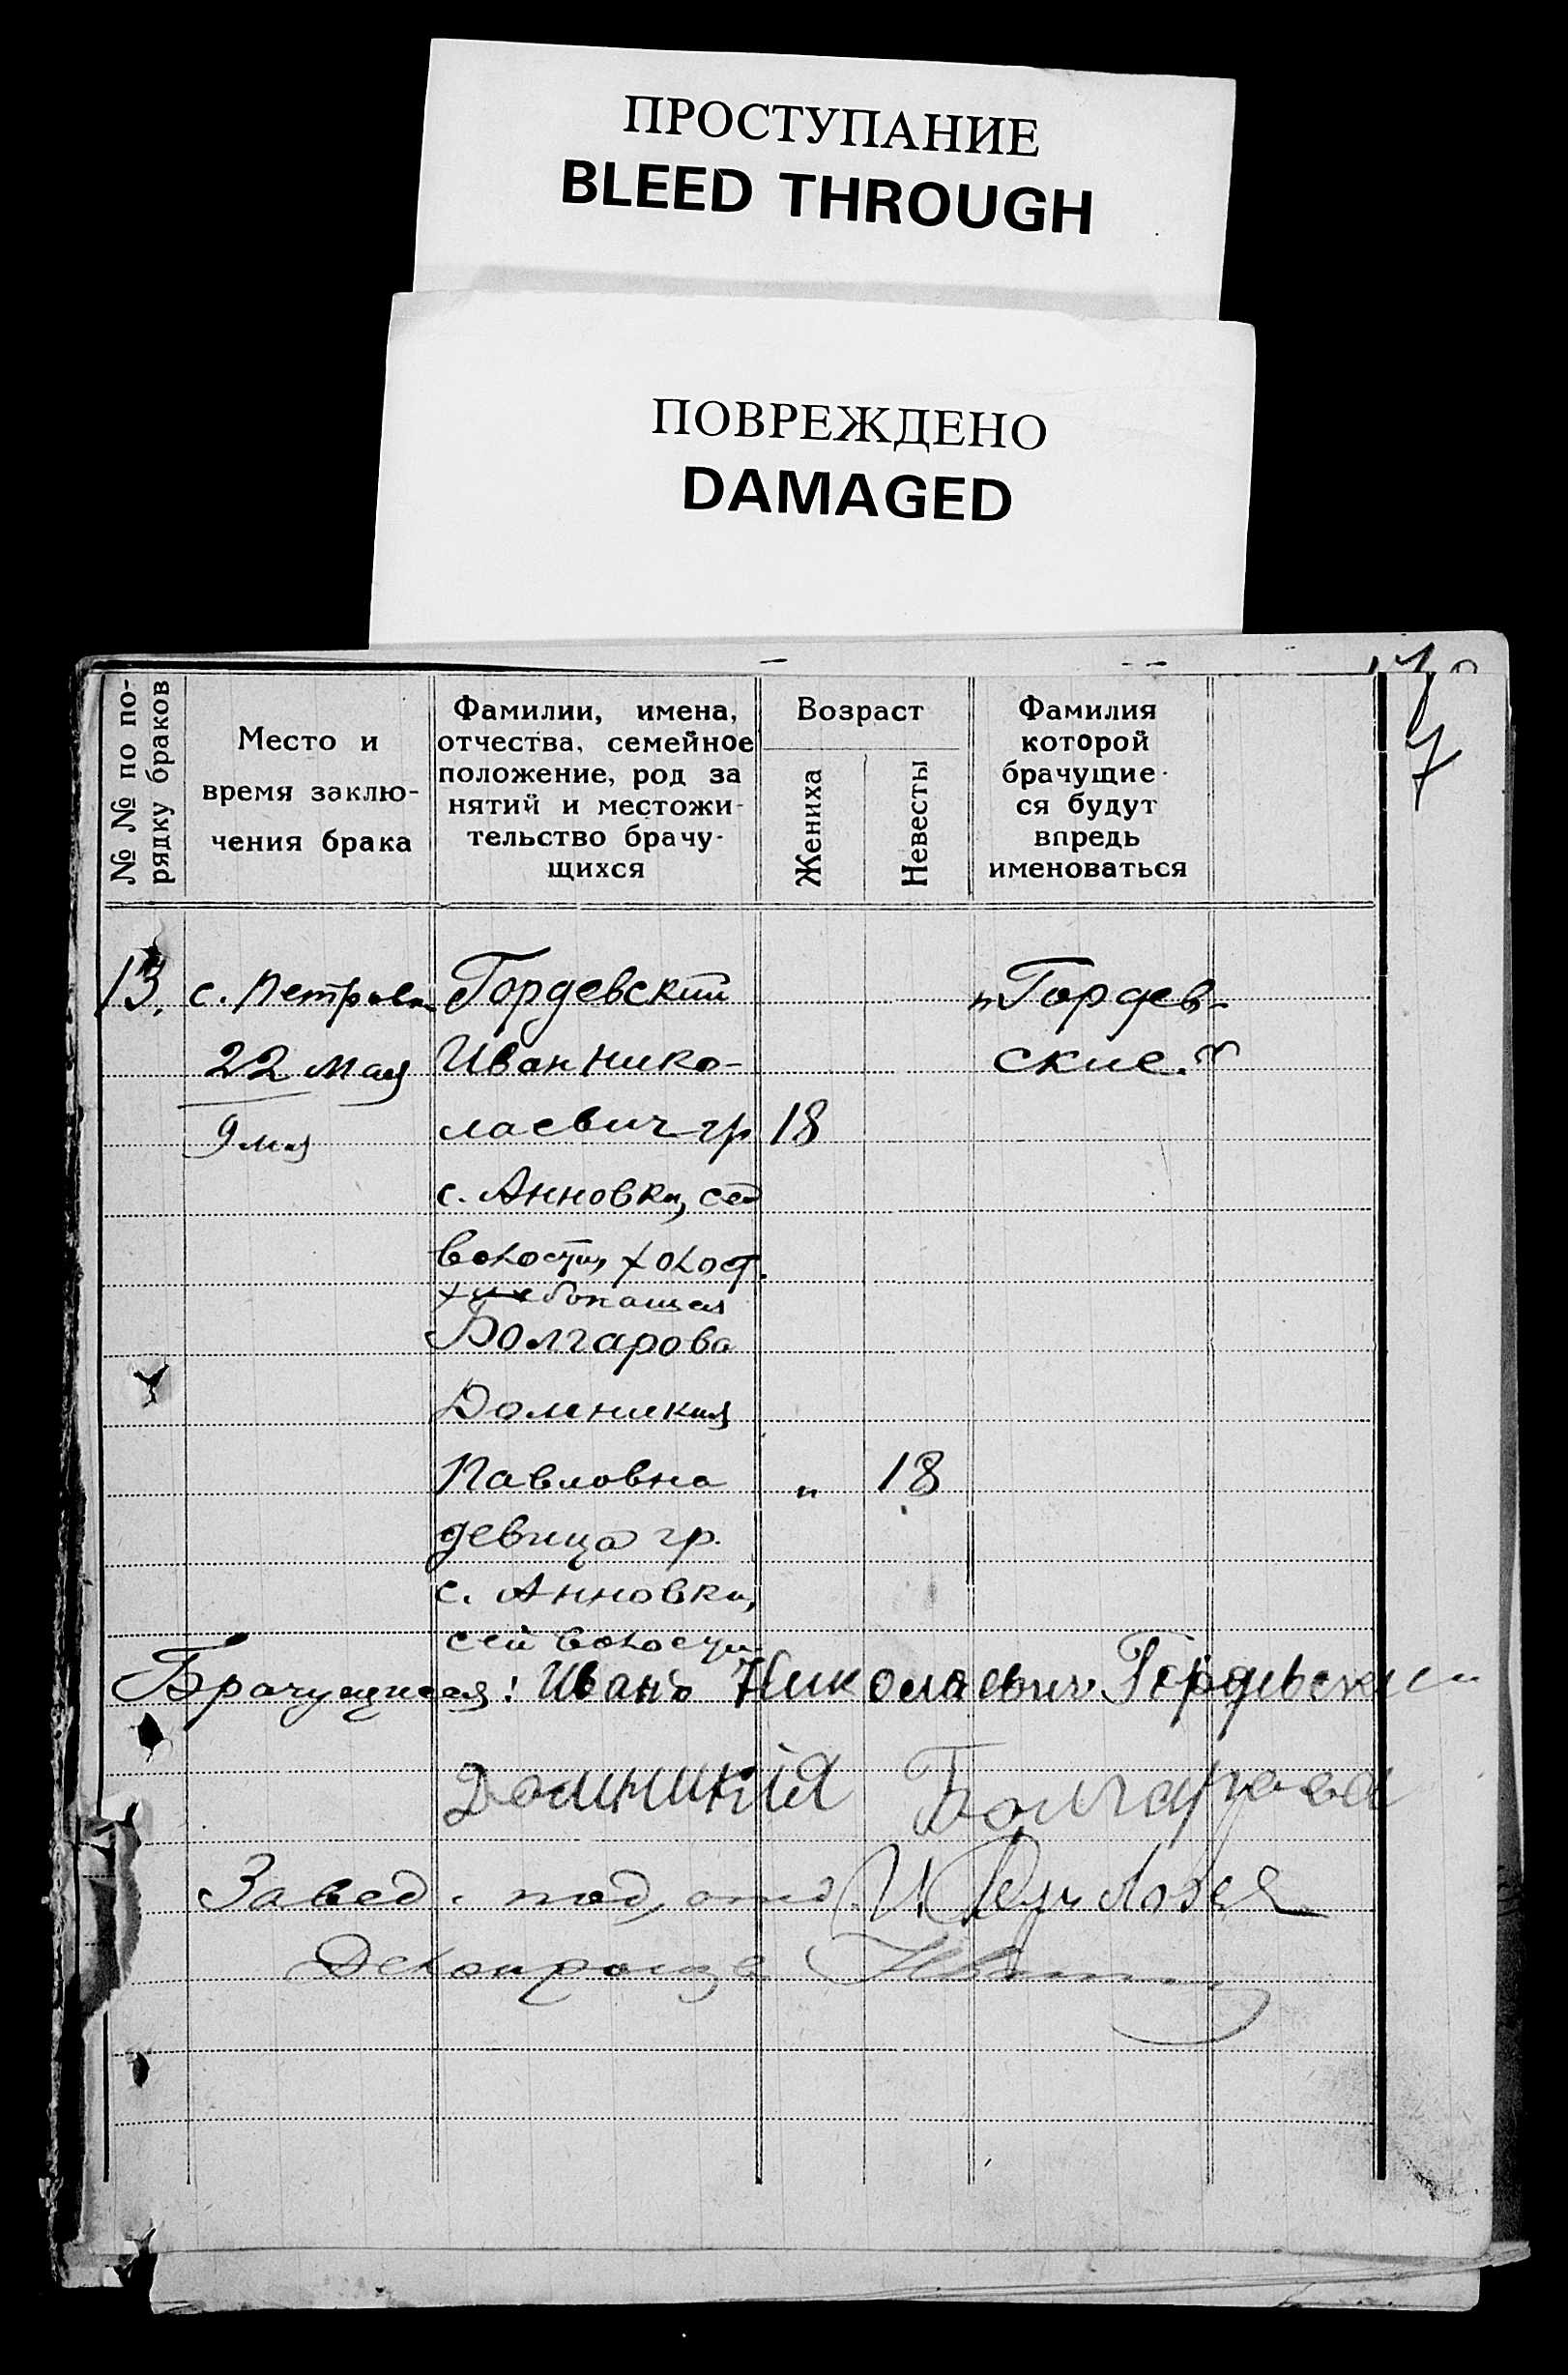 ПРОСТУПАНИЕ
BLEED THROUGH
ПОВРЕЖДЕНО
DAMAGED
7
№ № по по-
рядку браков
Место и
время заклю-
чения брака
Фамилии, имена,
отчества, семейное
положение, род за
нятий и местожи-
тельство брачу-
щихся
Возраст
Жениха
Невесты
Фамилия
которой
брачущие-
ся будут
впредь
именоваться
13.
с. Петровка
22 мая
9 мая
Гордевский
Иван Нико-
лаевич гр
18
с. Анновки, сей
волости, холост.
хлебопашец
Болгарова
Домникия
Павловна
" 18
девица гр.
с. Анновки,
сей волости
„Гордев-
ские."
Брачущиеся: Иванъ Николаевич Гордевский
Домникiя Болгарова
Завед. под, отд И